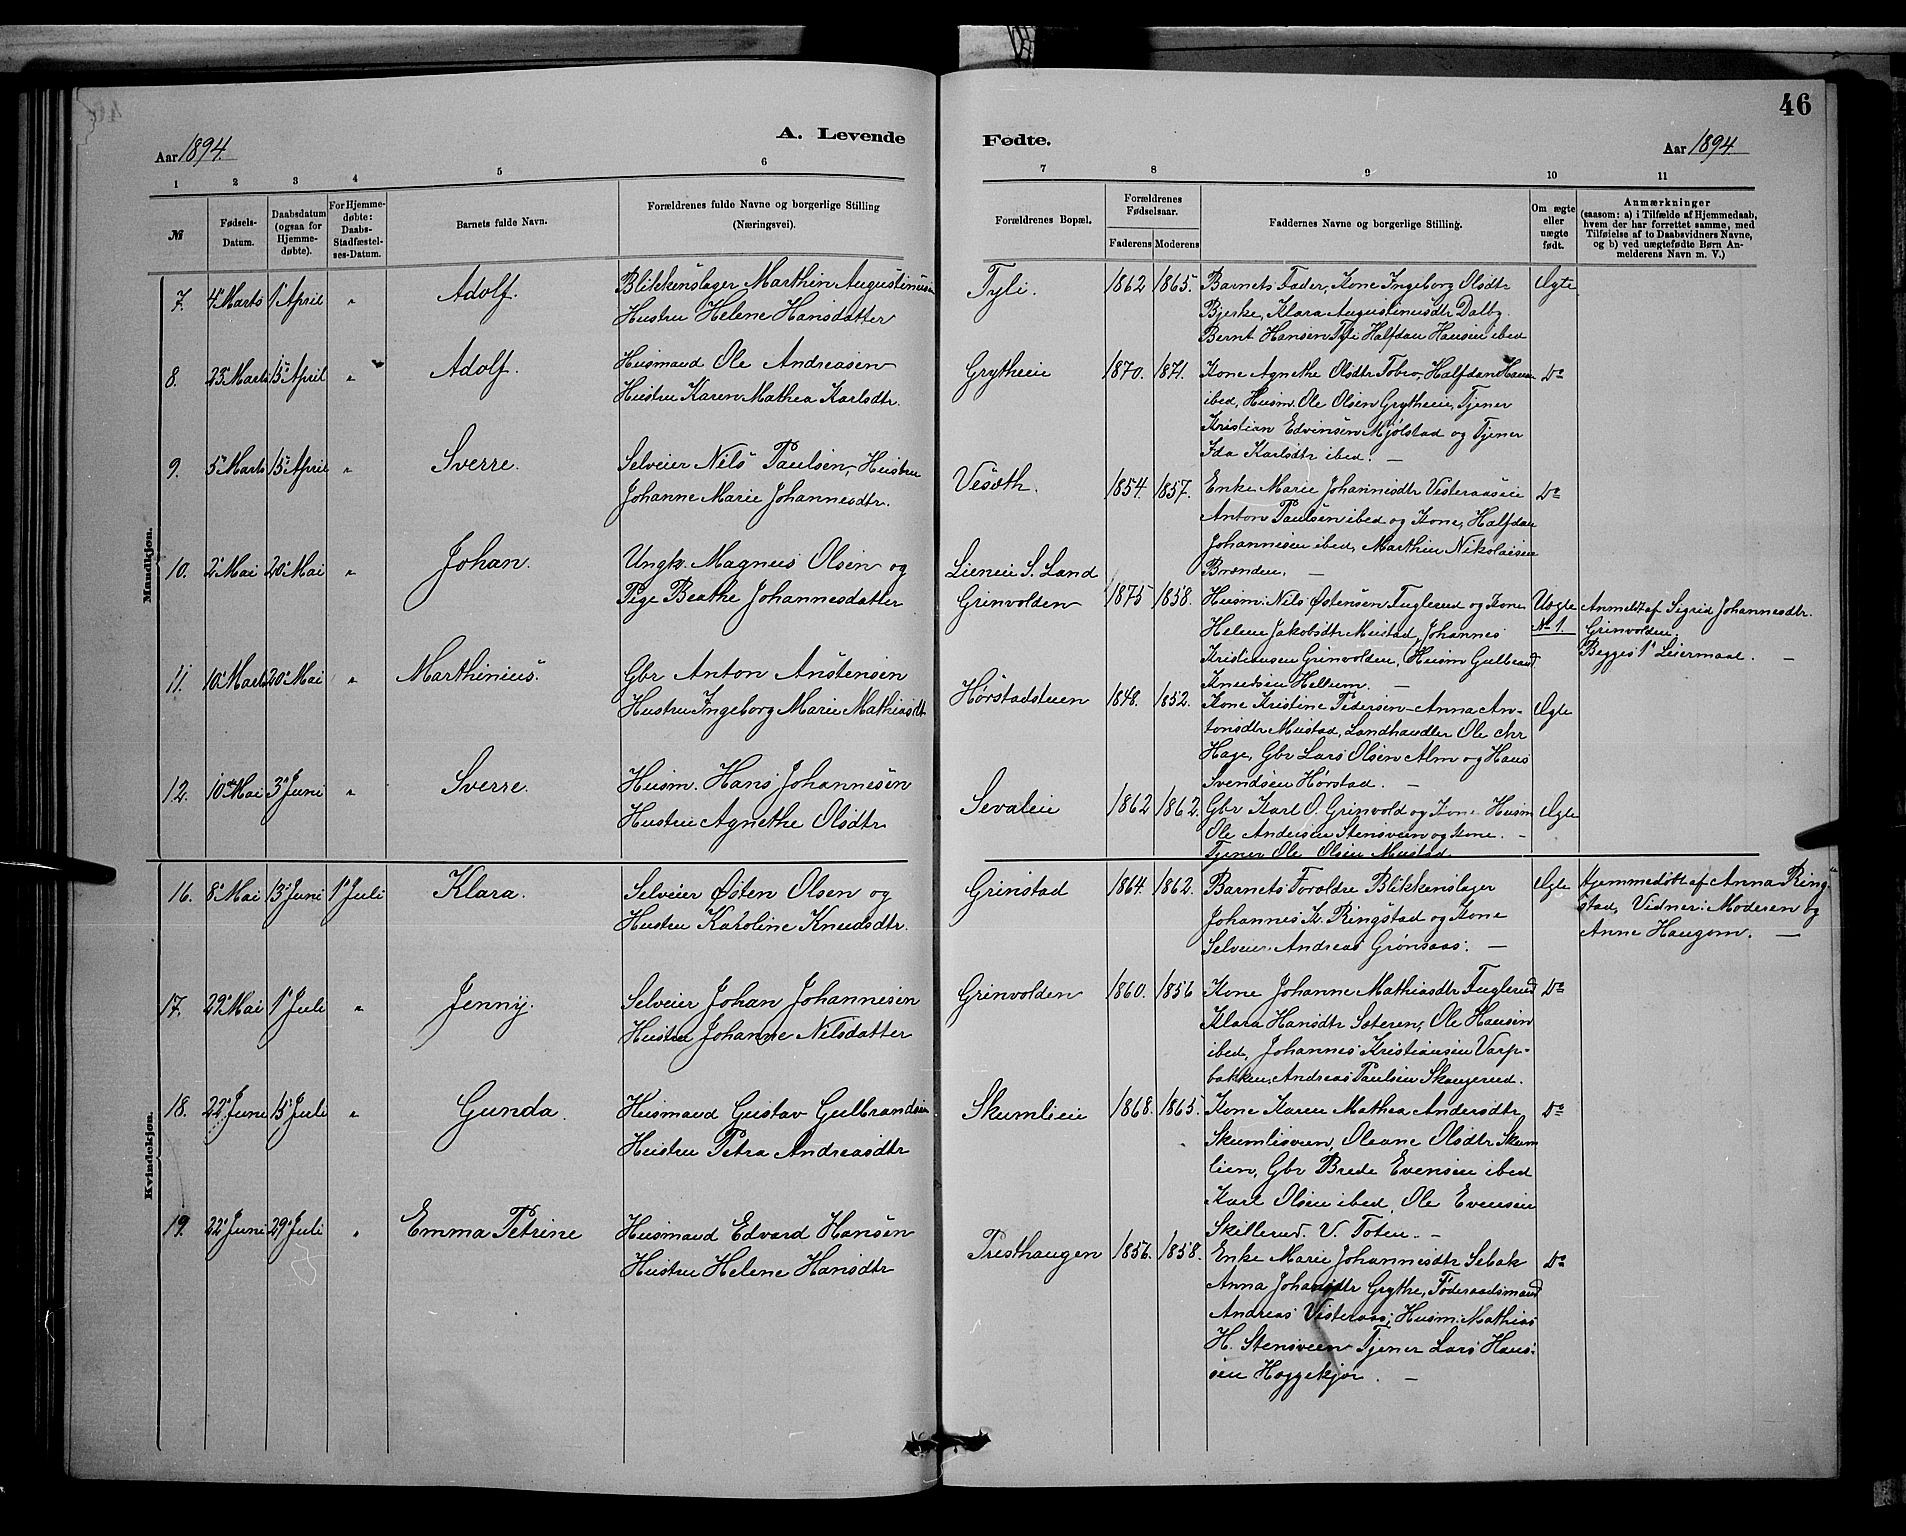 46
A. Levende
Fødte.
Aar 1894.
Aar 1894.
1 2 3 4 5 6 7 8 9 10 11
№
Fødsels-
Datum.
Daabsdatum
(ogsaa for
Hjemme-
døbte).
For Hjemme-
døbte:
Daabs-
Stadfæstel-
ses-Datum.
Barnets fulde Navn.
Forældrenes fulde Navne og borgerlige Stilling
(Næringsvei).
Forældrenes Bopæl.
Forældrenes
Fødselsaar.
Faderens Moderens
Faddernes Navne og borgerlige Stilling.
Om ægte
eller
uægte
født.
Anmærkninger
(saasom: a) i Tilfælde af Hjemmedaab,
hvem der har forrettet samme, med
Tilføielse af to Daabsvidners Navne,
og b) ved uægtefødte Børn An-
melderens Navn m. V.)
Mandkjøn.
7. 4 Marts 1 April " Adolf.
Blikkenslager Marthin Augustinusen
Hustru Helene Hansdatter
Tyli. 1862 1865.
Barnets Fader, Kone Ingeborg Olsdtr
Bjerke, Klara Augustinusdtr Dalby
Bernt Hansen Tyli Halfdan Hansen ibed
Ægte
8. 23 Marts 15 April " Adolf.
Husmand Ole Andreasen
Hustru Karen Mathea Karlsdtr.
Grytheie 1870. 1871.
Kone Agnethe Olsdtr Fobro, Halfdan Hansen
ibed, Husm. Ole Olsen Grytheie, Tjener
Kristian Edvinsen Mjølstad og Tjener
Ida Karlsdtr ibed. —
Do
9. 5 Marts 15 April " Sverre.
Selveier Nils Paulsen, Hustru
Johanne Marie Johannesdtr.
Vesæth. 1854. 1857.
Enke Marie Johannesdtr Vesteraaseie
Anton Paulsen ibed og Kone, Halfdan
Johannesen ibed, Marthin Nikolaisen
Brænden. —
Do
10. 2 Mai 20 Mai " Johan.
Ungk. Magnus Olsen og
Pige Beathe Johannesdatter
Lieneie S. Land
Grinvolden 1875 1858.
Husm. Nils Østensen Fuglerud og Kone
Helene Jakobsdtr Mustad, Johannes
Kristiansen Grinvolden, Husm Gulbrand
Knudsen Hellum. —
Uægte
No 1.
Anmeldt af Sigrid Johannesdtr.
Grinvolden.
Begges 1ste Leiermaal. —
11. 10 Marts 20 Mai " Marthinius.
Gbr Anton Anstensen
Hustru Ingeborg Marie Mathiasdtr
Hørstadstuen 1848. 1852.
Kone Kristine Pedersen - Anna An-
tonsdtr Mustad, Landhandler Ole Chr
Hage, Gbr Lars Olsen Alm og Hans
Svendsen Hørstad. —
Ægte
12. 10 Mai 3 Juni " Sverre.
Husm. Hans Johannesen
Hustru Agnethe Olsdtr
Sevaleie 1862 1862.
Gbr Karl O. Grinvold og Kone. Husm
Ole Andersen Stensveen og Kone. —
Tjener Ole Olsen Mustad.
Ægte
Kvindekjøn.
16. 8 Mai 13 Juni 1 Juli Klara.
Selveier Østen Olsen og
Hustru Karoline Knudsdtr.
Grinstad 1864. 1862.
Barnets Foroldre Blikkenslager
Johannes K. Ringstad og Kone
Selveier Andreas Grønsaas. —
Ægte
Hjemmedøbt af Anna Ring-
stad, Vidner: Moderen og
Anne Haugom. —
17. 29 Mai 1 Juli " Jenny.
Selveier Johan Johannesen
Hustru Johanne Nilsdatter
Grinvolden 1860. 1856
Kone Johanne Mathiasdtr Fuglerud
Klara Hansdtr Sæteren, Ole Hansen
ibed, Johannes Kristiansen Varp-
bakken, Andreas Paulsen Skaugerud.
Do
18. 22 Juni 15 Juli " Gunda.
Husmand Gustav Gulbrandsen
Hustru Petra Andreasdtr
Skumlieie 1868. 1865.
Kone Karen Mathea Andersdtr
Skumlisveen, Oleane Olsdtr Skum
lien, Gbr Brede Evensen ibed
Karl Olsen ibed, Ole Evensen
Skillerud. V. Toten. —
Do
19. 22 Juni 29 Juli " Emma Petrine
Husmand Edvard Hansen
Hustru Helene Hansdtr
Presthaugen 1856. 1858.
Enke Marie Johannesdtr Sebak
Anna Johansdtr Grythe, Føderaadsmand
Andreas Vesteraas, Husm. Mathias
H. Stensveen Tjener Lars Han-
sen Hoggekjør. —
Do